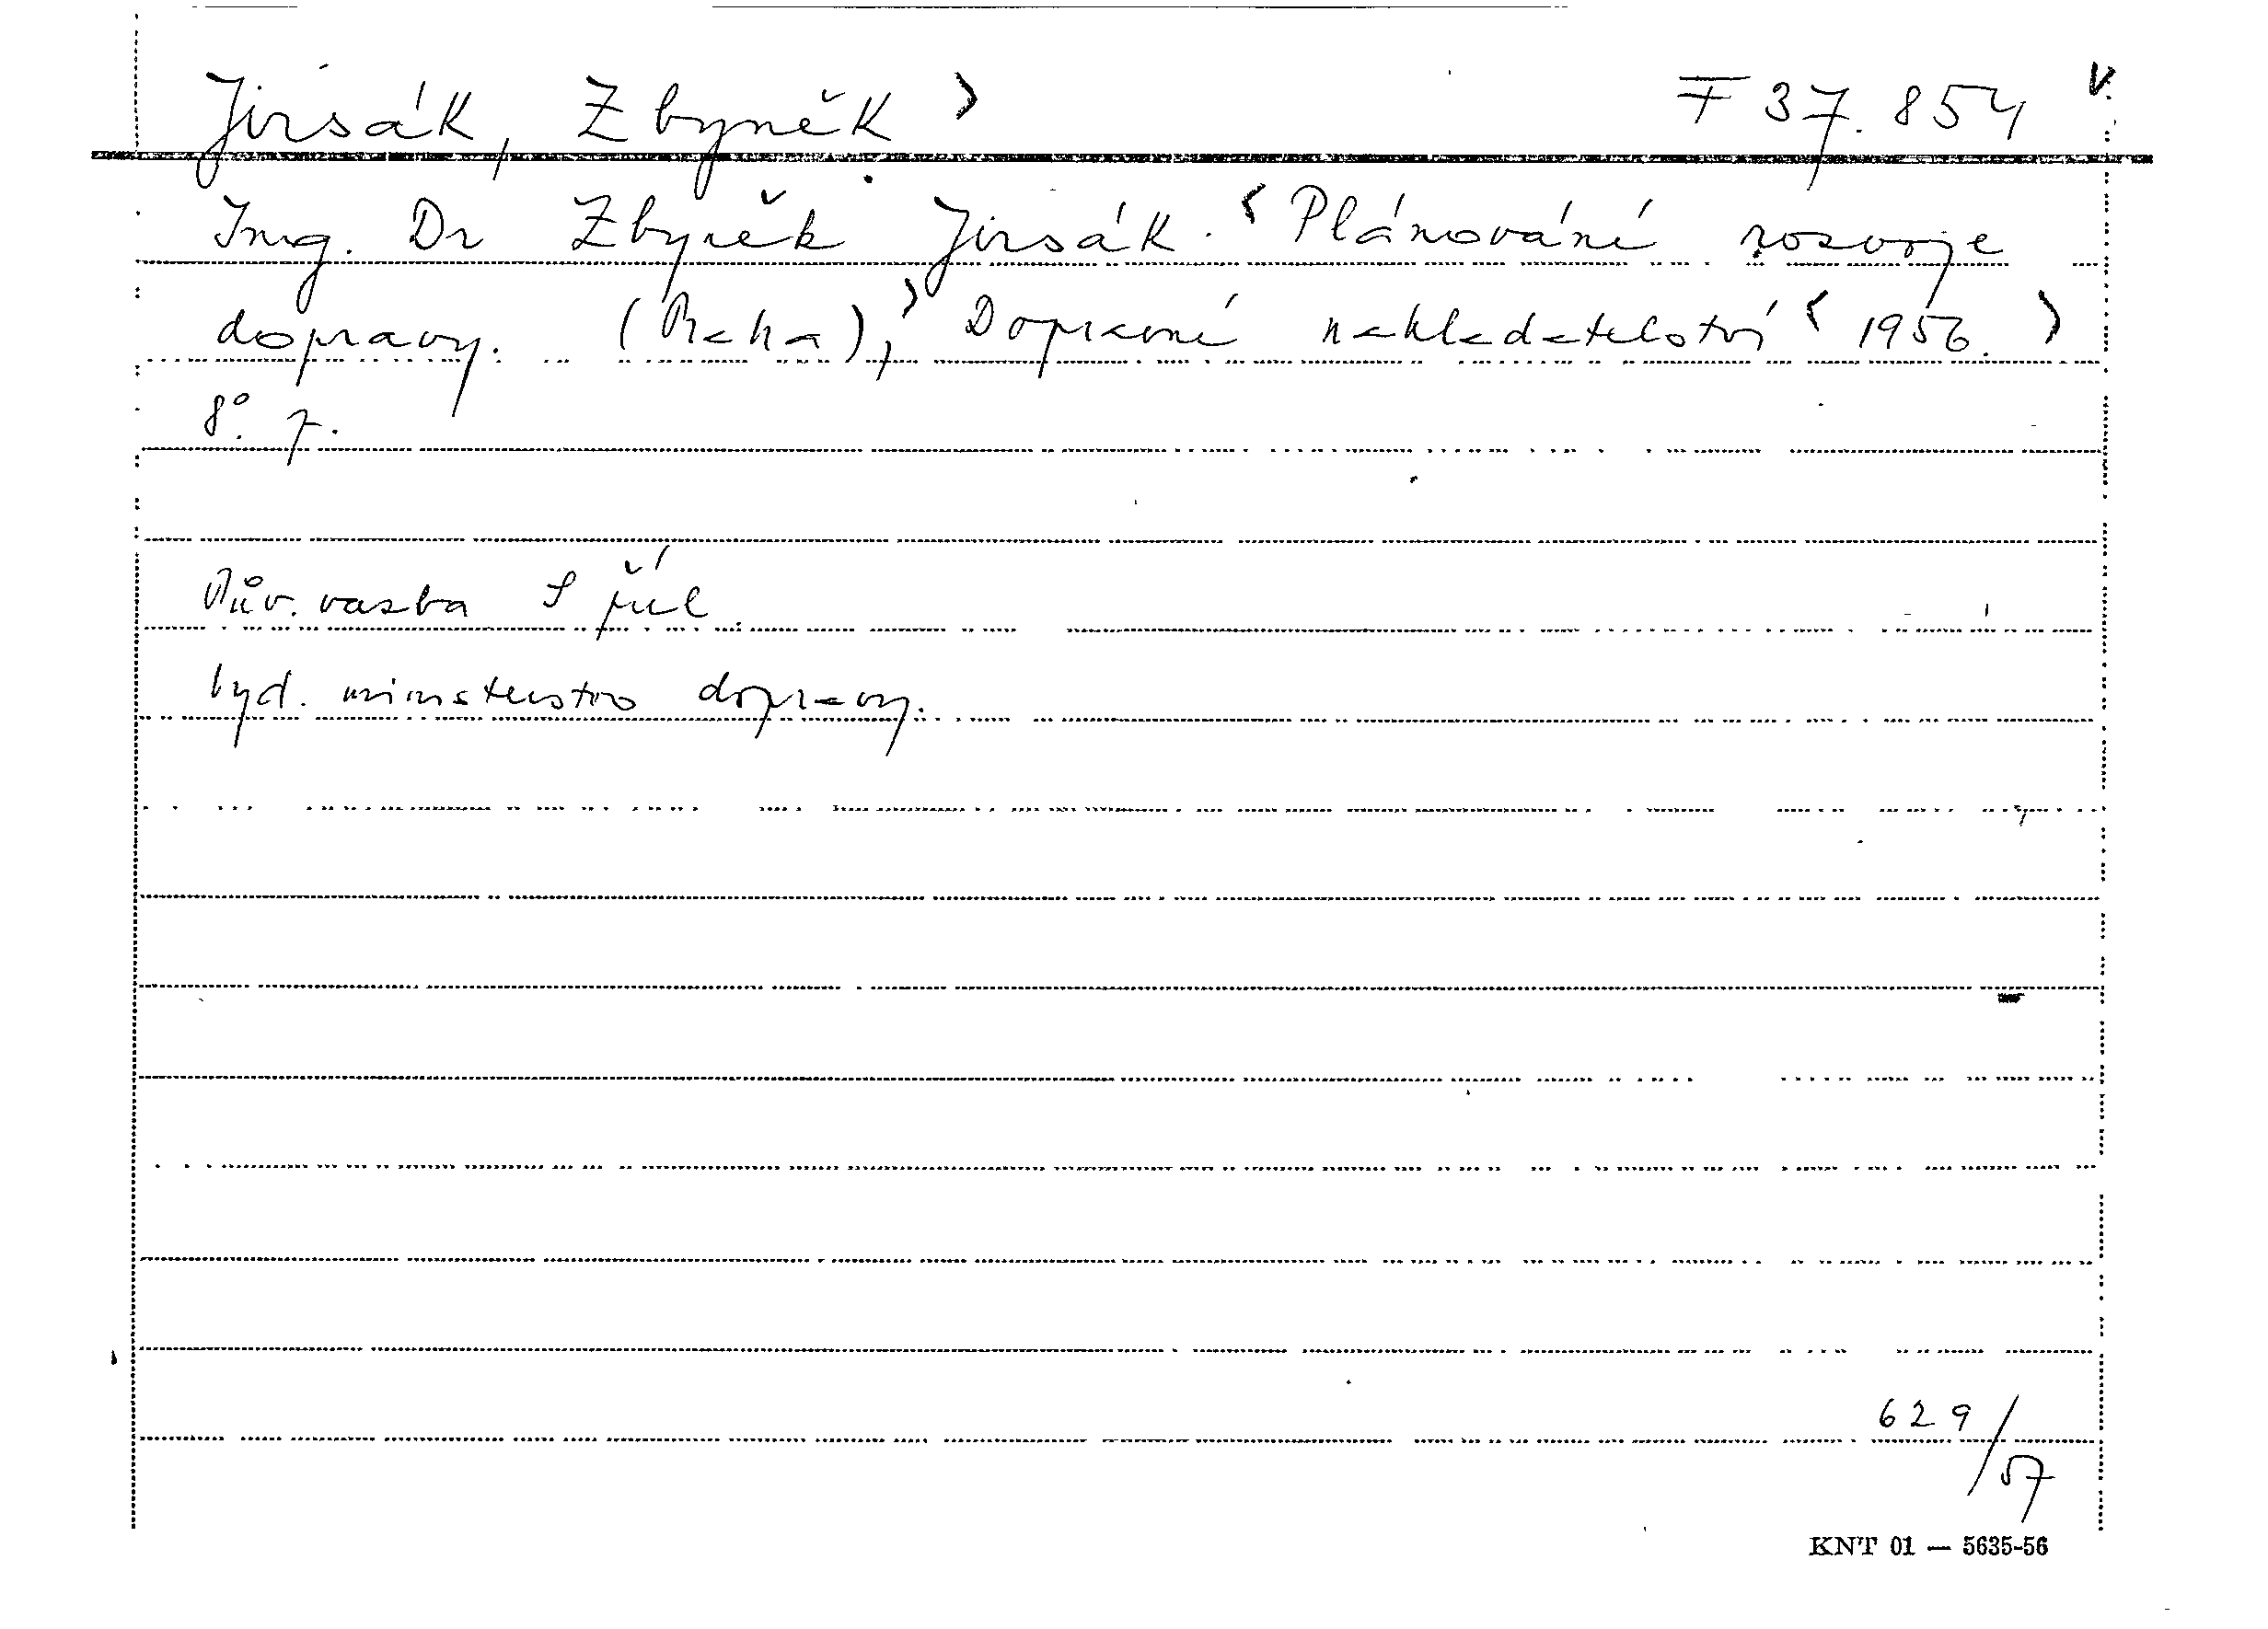 Jirsák, Zbyněk > F 37.854 V.
Ing. Dr Zbyněk Jirsák. < Plánování rozvoje
dopravy. (Praha), > Dopravní nakladatelství < 1956. >
8°.
Pův. vazba S příl.
Vyd. ministerstvo dopravy.
629/57
KNT 01 — 5635-56